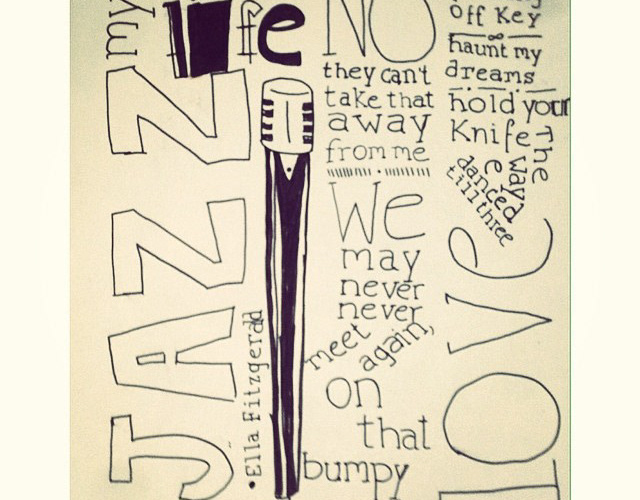 my
life
JAZZ
•Ella Fitzgerald
NO
they can't
take that
away
from me
We
may
never
never
meet
again,
on
that
bumpy
off Key
haunt my
dreams
hold your
Knife
The
way
we
danced
till three
love